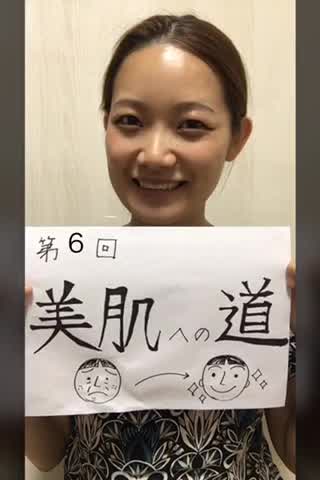 第6回
美肌への道